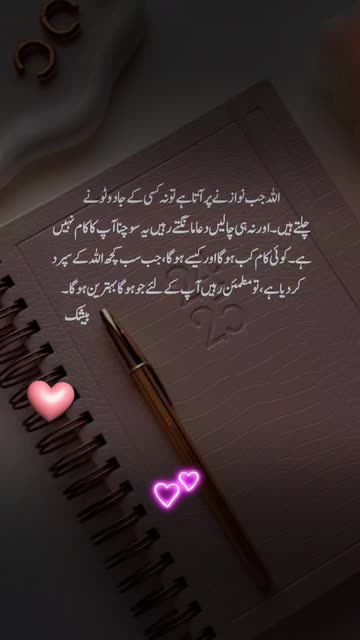 اللہ جب نوازنے پر آتا ہے تو نہ کسی کے جادو ٹونے
چلتے ہیں۔ اور نہ ہی چالیں دعا مانگتے رہیں یہ سوچنا آپ کا کام نہیں
ہے۔ کوئی کام کب ہوگا اور کیسے ہوگا، جب سب کچھ اللہ کے سپرد
کر دیا ہے، تو مطمئن رہیں آپ کے لئے جو ہوگا بہترین ہوگا۔
بیشک
20
25